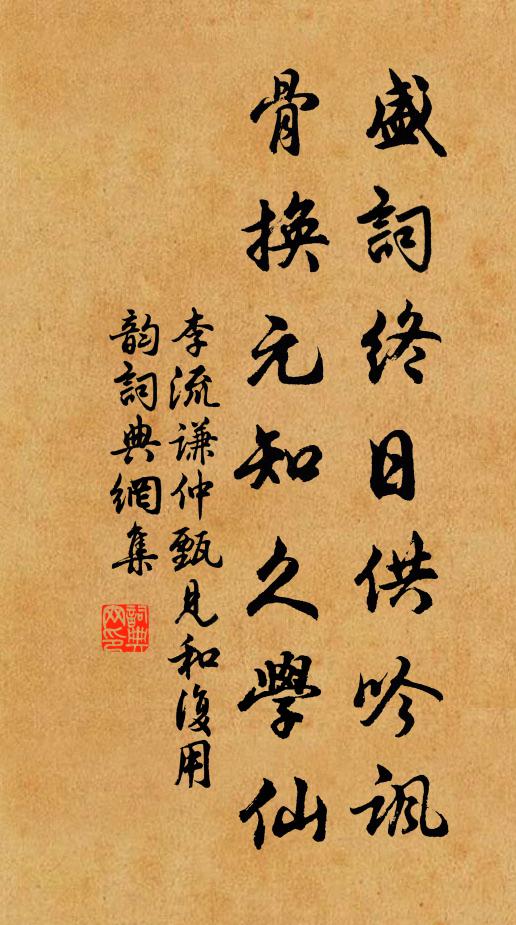 盛詞終日供吟諷
骨換元知久學仙
李流謙仲甄見和復用
韵詞典網集
詞典
网印